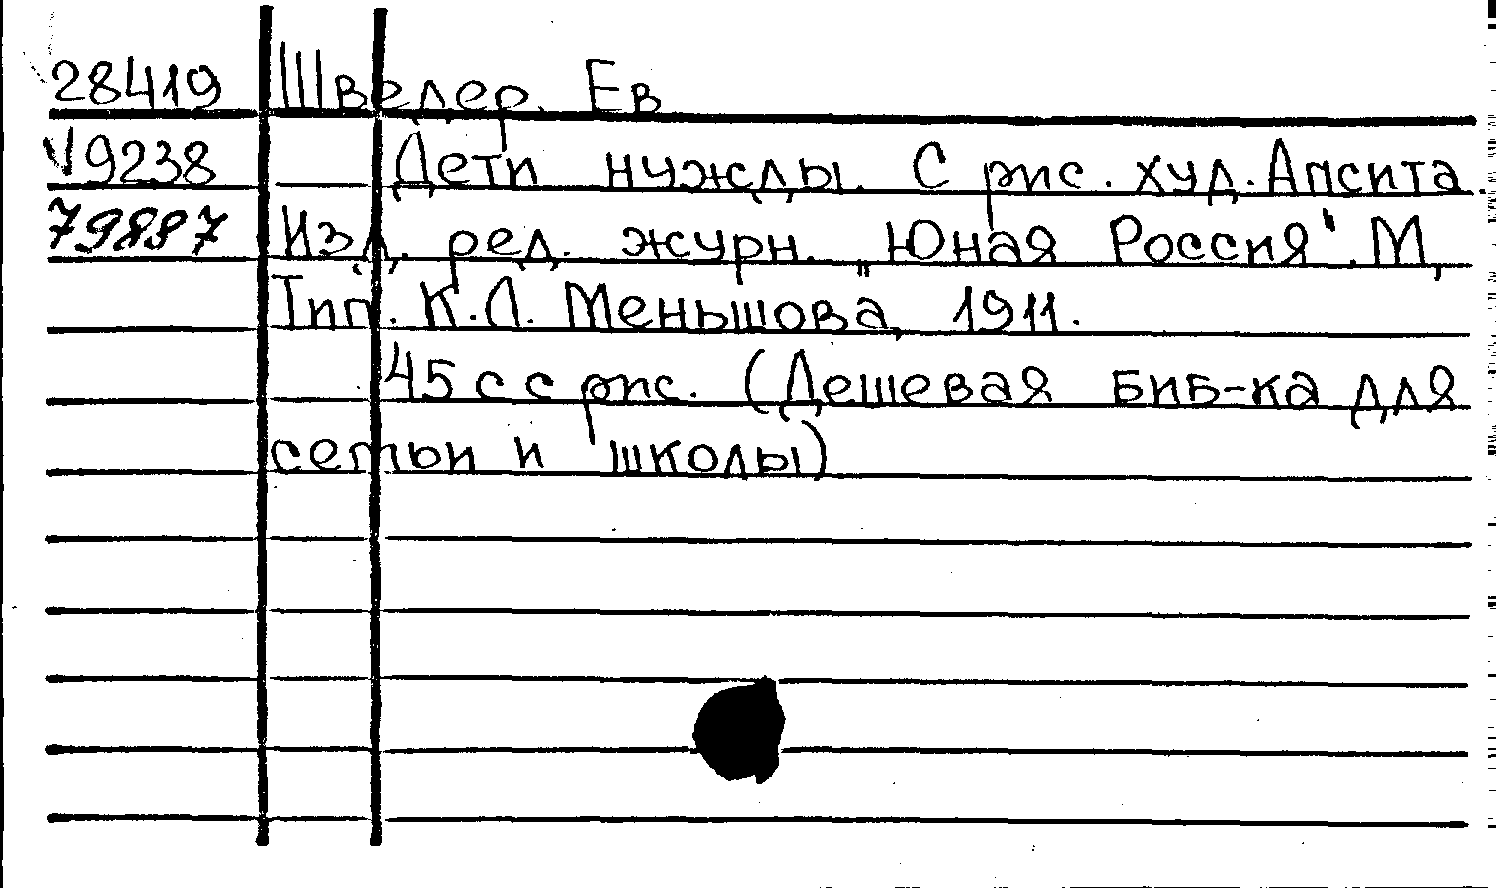 28419 Шведер. Ев
V9238 Дети нужды. С рис. худ. Апсита.
79887 Изд. ред. журн. „Юная Россия". М,
Тип. К.Л. Меньшова, 1911.
45 с с рис. (Дешевая биб-ка для
семьи и школы)